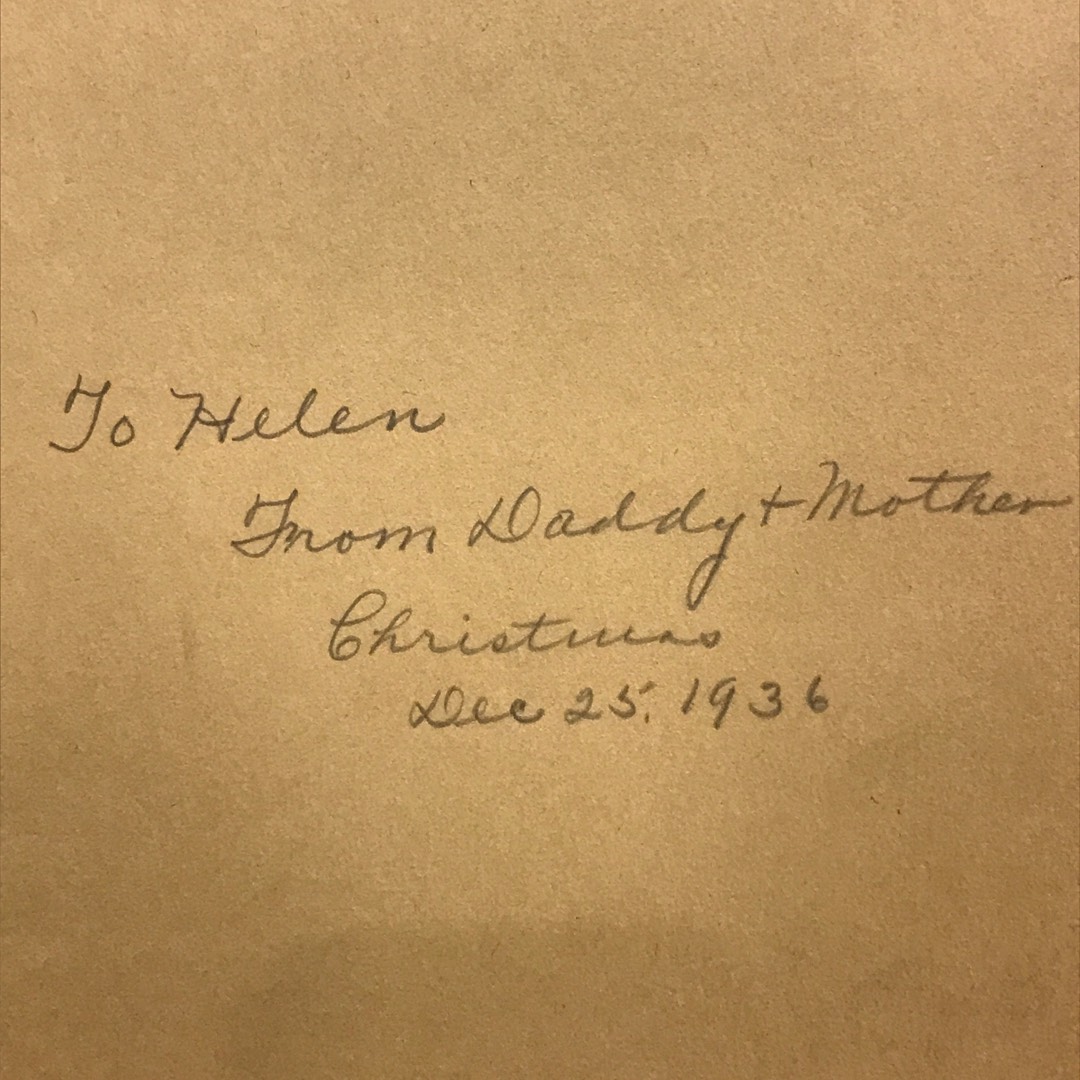 To Helen
From Daddy + Mother
Christmas
Dec 25, 1936